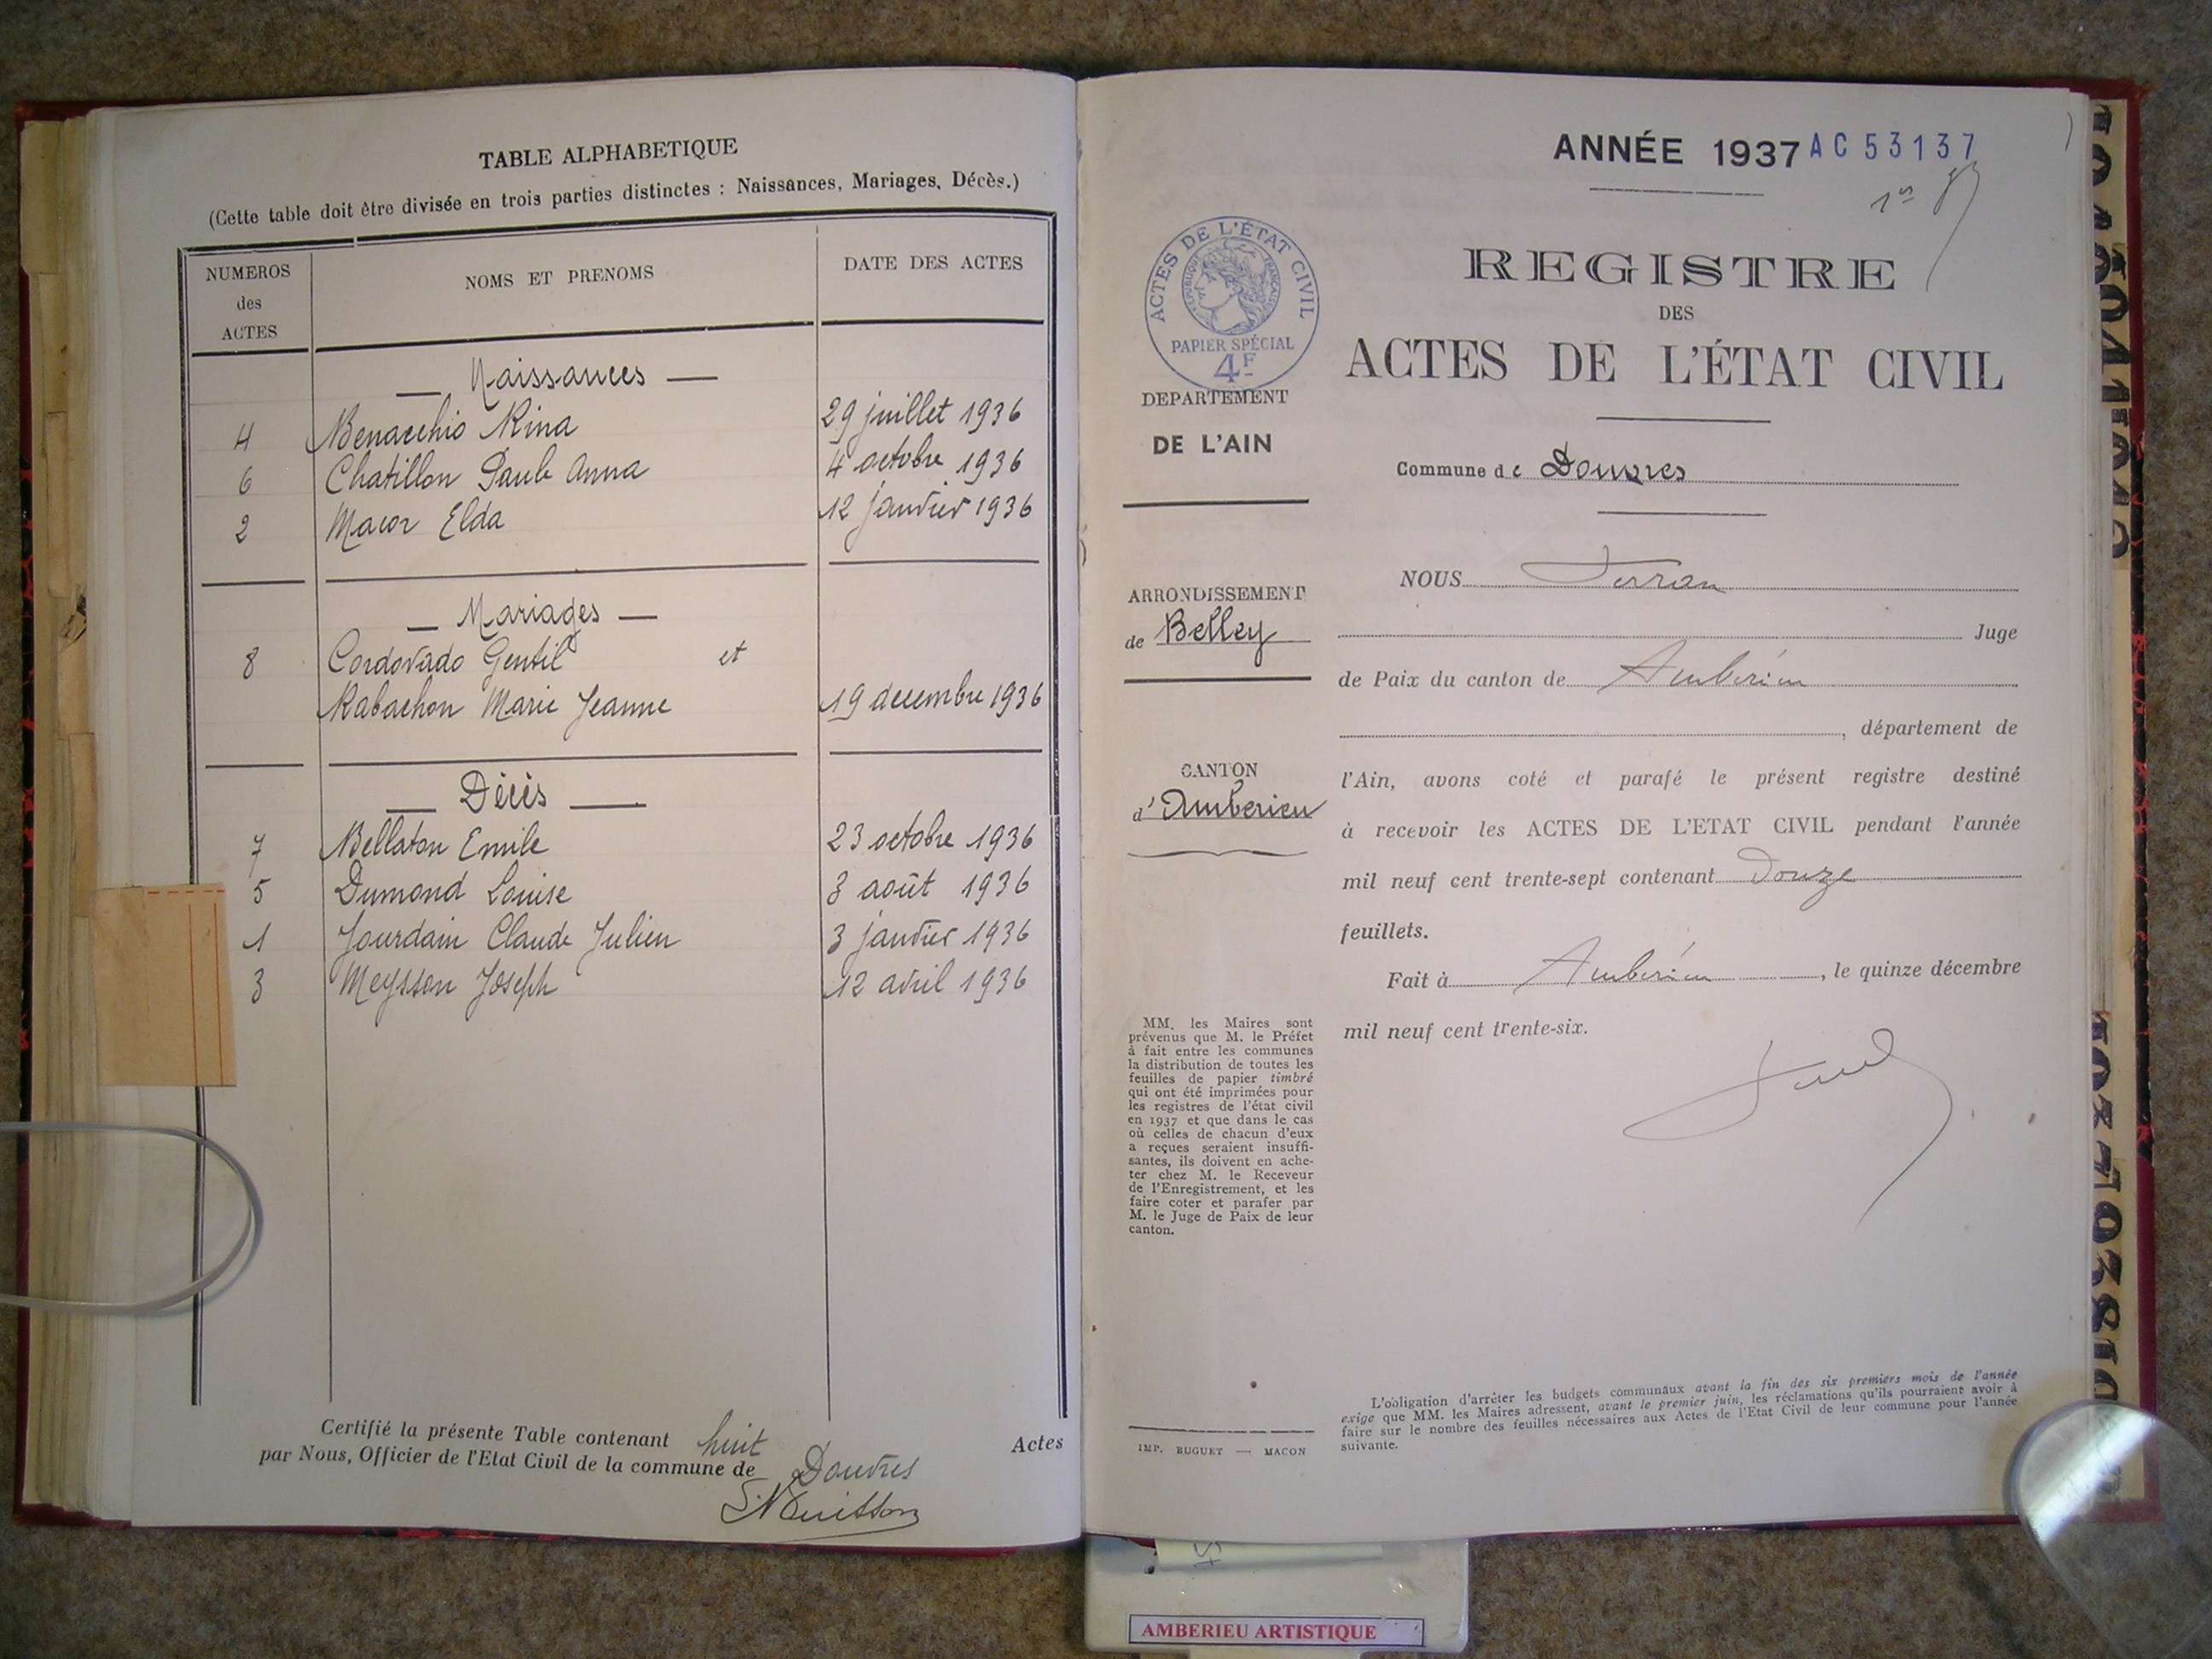 TABLE ALPHABETIQUE
(Cette table doit être divisée en trois parties distinctes : Naissances, Mariages, Décès.)
NUMEROS des ACTES NOMS ET PRENOMS DATE DES ACTES
— Naissances —
4 Benacchio Rina 29 juillet 1936
6 Chatillon Paule Anna 4 octobre 1936
2 Macor Elda 12 janvier 1936
— Mariages —
8 Cordovado Gentil et
Rabachon Marie Jeanne 19 decembre 1936
— Décès —
7 Bellaton Emile 23 octobre 1936
5 Dumond Louise 3 août 1936
1 Jourdain Claude Julien 3 janvier 1936
3 Meysson Joseph 12 avril 1936
Certifié la présente Table contenant huit Actes
par Nous, Officier de l'Etat Civil de la commune de Douvres
ANNÉE 1937 AC 53137
ACTES DE L'ÉTAT CIVIL
RÉPUBLIQUE FRANÇAISE
PAPIER SPÉCIAL
4F
REGISTRE
DES
ACTES DE L'ÉTAT CIVIL
DEPARTEMENT
DE L'AIN
Commune de Douvres
ARRONDISSEMENT
de Belley
CANTON
d'Amberieu
NOUS Ferran
Juge
de Paix du canton de Ambérieu
, département de
l'Ain, avons coté et parafé le présent registre destiné
à recevoir les ACTES DE L'ETAT CIVIL pendant l'année
mil neuf cent trente-sept contenant Douze
feuillets.
Fait à Ambérieu, le quinze décembre
mil neuf cent trente-six.
MM. les Maires sont
prévenus que M. le Préfet
à fait entre les communes
la distribution de toutes les
feuilles de papier timbré
qui ont été imprimées pour
les registres de l'état civil
en 1937 et que dans le cas
où celles de chacun d'eux
a reçues seraient insuffi-
santes, ils doivent en ache-
ter chez M. le Receveur
de l'Enregistrement, et les
faire coter et parafer par
M. le Juge de Paix de leur
canton.
IMP. BUGUET — MACON
L'obligation d'arrêter les budgets communaux avant la fin des six premiers mois de l'année
exige que MM. les Maires adressent, avant le premier juin, les réclamations qu'ils pourraient avoir à
faire sur le nombre des feuilles nécessaires aux Actes de l'Etat Civil de leur commune pour l'année
suivante.
AMBERIEU ARTISTIQUE